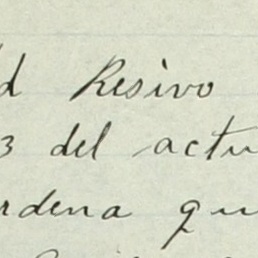 d Resivo
3 del actu
rdena qu